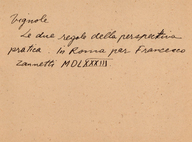 Vignole
Le due regole della perspectiva
pratica. In Roma par Francesco
Zannetti MDLXXXIII